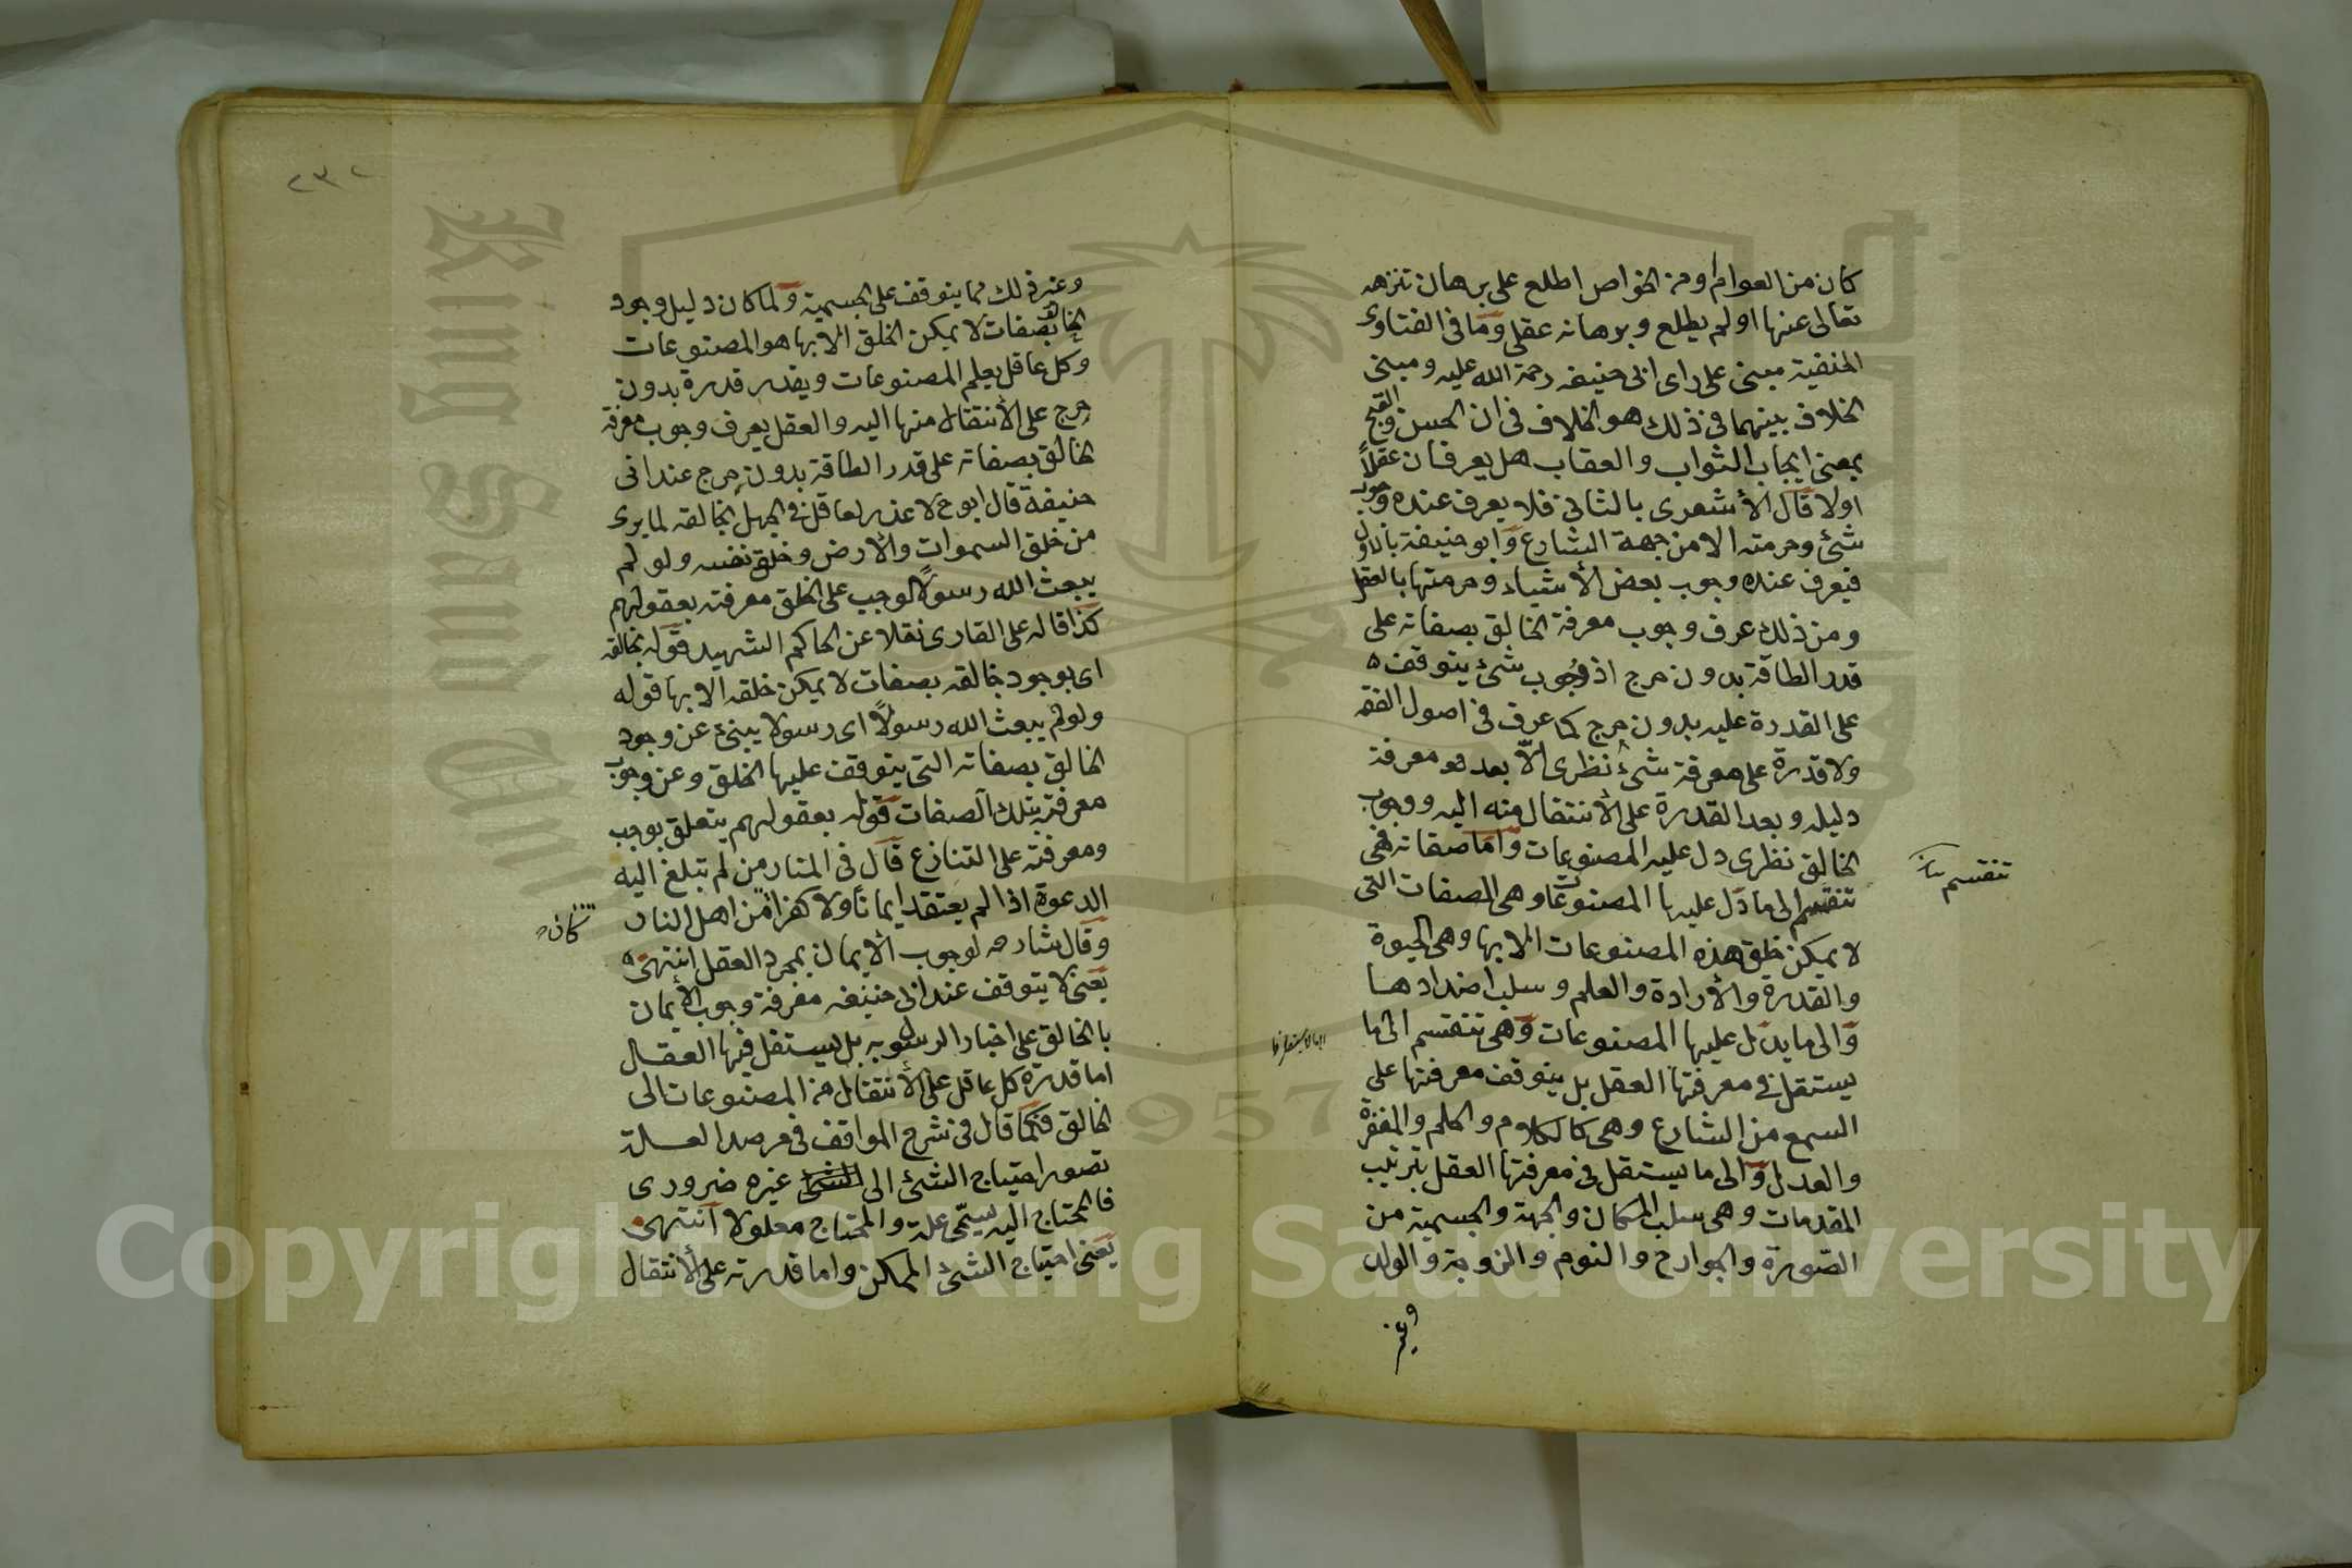 كان من العوام او من الخواص اطلع على برهان تنزهه
تعالى عنها او لم يطلع وبرهانه عقلى وما فى الفتاوى
الحنفية مبنى على راى ابى حنيفه رحمة الله عليه ومبنى
الخلاف بينهما فى ذلك هو الخلاف فى ان الحسن والقبح
بمعنى ايجاب الثواب والعقاب هل يعرفان عقلاً
اولا قال الأشعرى بالثانى فلا يعرف عنده وجوب
شئ وحرمته الا من جهة الشارع وابو حنيفة بالاول
فيعرف عنده وجوب بعض الأشياء وحرمتها بالعقل
ومن ذلك عرف وجوب معرفة الخالق بصفاته على
قدر الطاقة بدون حرج اذ وجوب شئ يتوقف ه
على القدرة عليه بدون حرج كما عرف فى اصول الفقه
ولا قدرة على معرفة شئ نظرى الّا بعد معرفة
دليله وبعد القدرة على الأنتقال منه اليه ووجوب
الخالق نظرى دل عليه المصنوعات واما صفاته فهى
تنقسم الى ما دل عليها المصنوعات وهى الصفات التى
تنقسم
لا يمكن خلق هذه المصنوعات الا بها وهى الحيوة
والقدرة والأرادة والعلم وسلب اضدادها
والى ما يدل عليها المصنوعات وهى تنقسم الى ما
يستقل فى معرفتها العقل بل يتوقف معرفتها على
السمع من الشارع وهى كالكلام والحلم والمغفرة
والعدل والى ما يستقل فى معرفتها العقل بترتيب
المقدمات وهى سلب المكان والجهة والجسمية من
الصّورة والجوارح والنوم والزوجة والولد
وغير
٢٣٢
وغير ذلك مما يتوقف على الجسمية ولما كان دليل وجود
الخالق بصفات لا يمكن الخلق الا بها هو المصنوعات
وكل عاقل يعلم المصنوعات ويقدر قدرة بدون
حرج على الأنتقال منها اليه والعقل يعرف وجوب معرفة
الخالق بصفاته على قدر الطاقة بدون حرج عند ابى
حنيفة قال ابو ح لا عذر لعاقل فى الجهل بخالقه لما يرى
من خلق السموات والأرض وخلق نفسه ولو لم
يبعث الله رسولاً لوجب على الخلق معرفته بعقولهم
كذا قاله على القارى نقلا عن الحاكم الشهيد قوله بخالقه
اى بوجود خالقه بصفات لا يمكن خلقه الا بها قوله
ولو لم يبعث الله رسولاً اى رسولا ينبئ عن وجود
الخالق بصفاته التى يتوقف عليها الخلق وعن وجوب
معرفته بتلك الصفات قوله بعقولهم يتعلق بوجب
ومعرفته على التنازع قال فى المنار من لم تبلغ اليه
الدعوة اذا لم يعتقد ايمانًا ولا كفرًا من اهل النار
كان
وقال شارحه لوجوب الأيمان بمجرد العقل انتهى ه
يعنى لا يتوقف عند ابى حنيفه معرفة وجوب الأيمان
بالخالق على اخبار الرسول به بل يستقل فيها العقل
اما قدرة كل عاقل على الأنتقال من المصنوعات الى
الخالق فكما قال فى شرح المواقف فى مرصد العلة
تصور احتياج الشئ الى غيره ضرورى
فالمحتاج اليه يسمّى علة والمحتاج معلولا انتهى
يعنى احتياج الشئ الممكن واما قدرته على الأنتقال
Copyright © King Saud University
King Saud University
1957